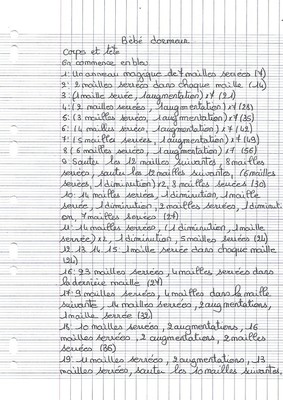 Bébé dormeur
Corps et tête
On commence en bleu
1: Un anneau magique de 7 mailles serrées (7)
2: 2 mailles serrées dans chaque maille (14)
3: (1 maille serrée, 1 augmentation) x7 (21)
4: (2 mailles serrées, 1 augmentation) x7 (28)
5: (3 mailles serrées, 1 augmentation) x7 (35)
6: (4 mailles serrées, 1 augmentation) x7 (42)
7: (5 mailles serrées, 1 augmentation) x7 (49)
8: (6 mailles serrées, 1 augmentation) x7 (56)
9: Sautez les 12 mailles suivantes, 8 mailles
serrées, sautez les 12 mailles suivantes, (6 mailles
serrées, 1 diminution) x2, 8 mailles serrées (30)
10: 14 mailles serrées, 1 diminution, 1 maille
serrée, 1 diminution, 2 mailles serrées, 1 diminuti
on, 7 mailles serrées (27)
11: 14 mailles serrées, (1 diminution, 1 maille
serrée) x2, 1 diminution, 5 mailles serrées (24)
12. 13. 14. 15: 1 maille serrée dans chaque maille
(24)
16: 23 mailles serrées, 4 mailles serrées dans
la dernière maille (27)
17: 9 mailles serrées, 4 mailles dans la maille
suivante, 14 mailles serrées, 2 augmentations,
1 maille serrée (32)
18: 10 mailles serrées, 2 augmentations, 16
mailles serrées, 2 augmentations, 2 mailles
serrées (36)
19: 11 mailles serrées, 2 augmentations, 13
mailles serrées, sautez les 10 mailles suivantes,